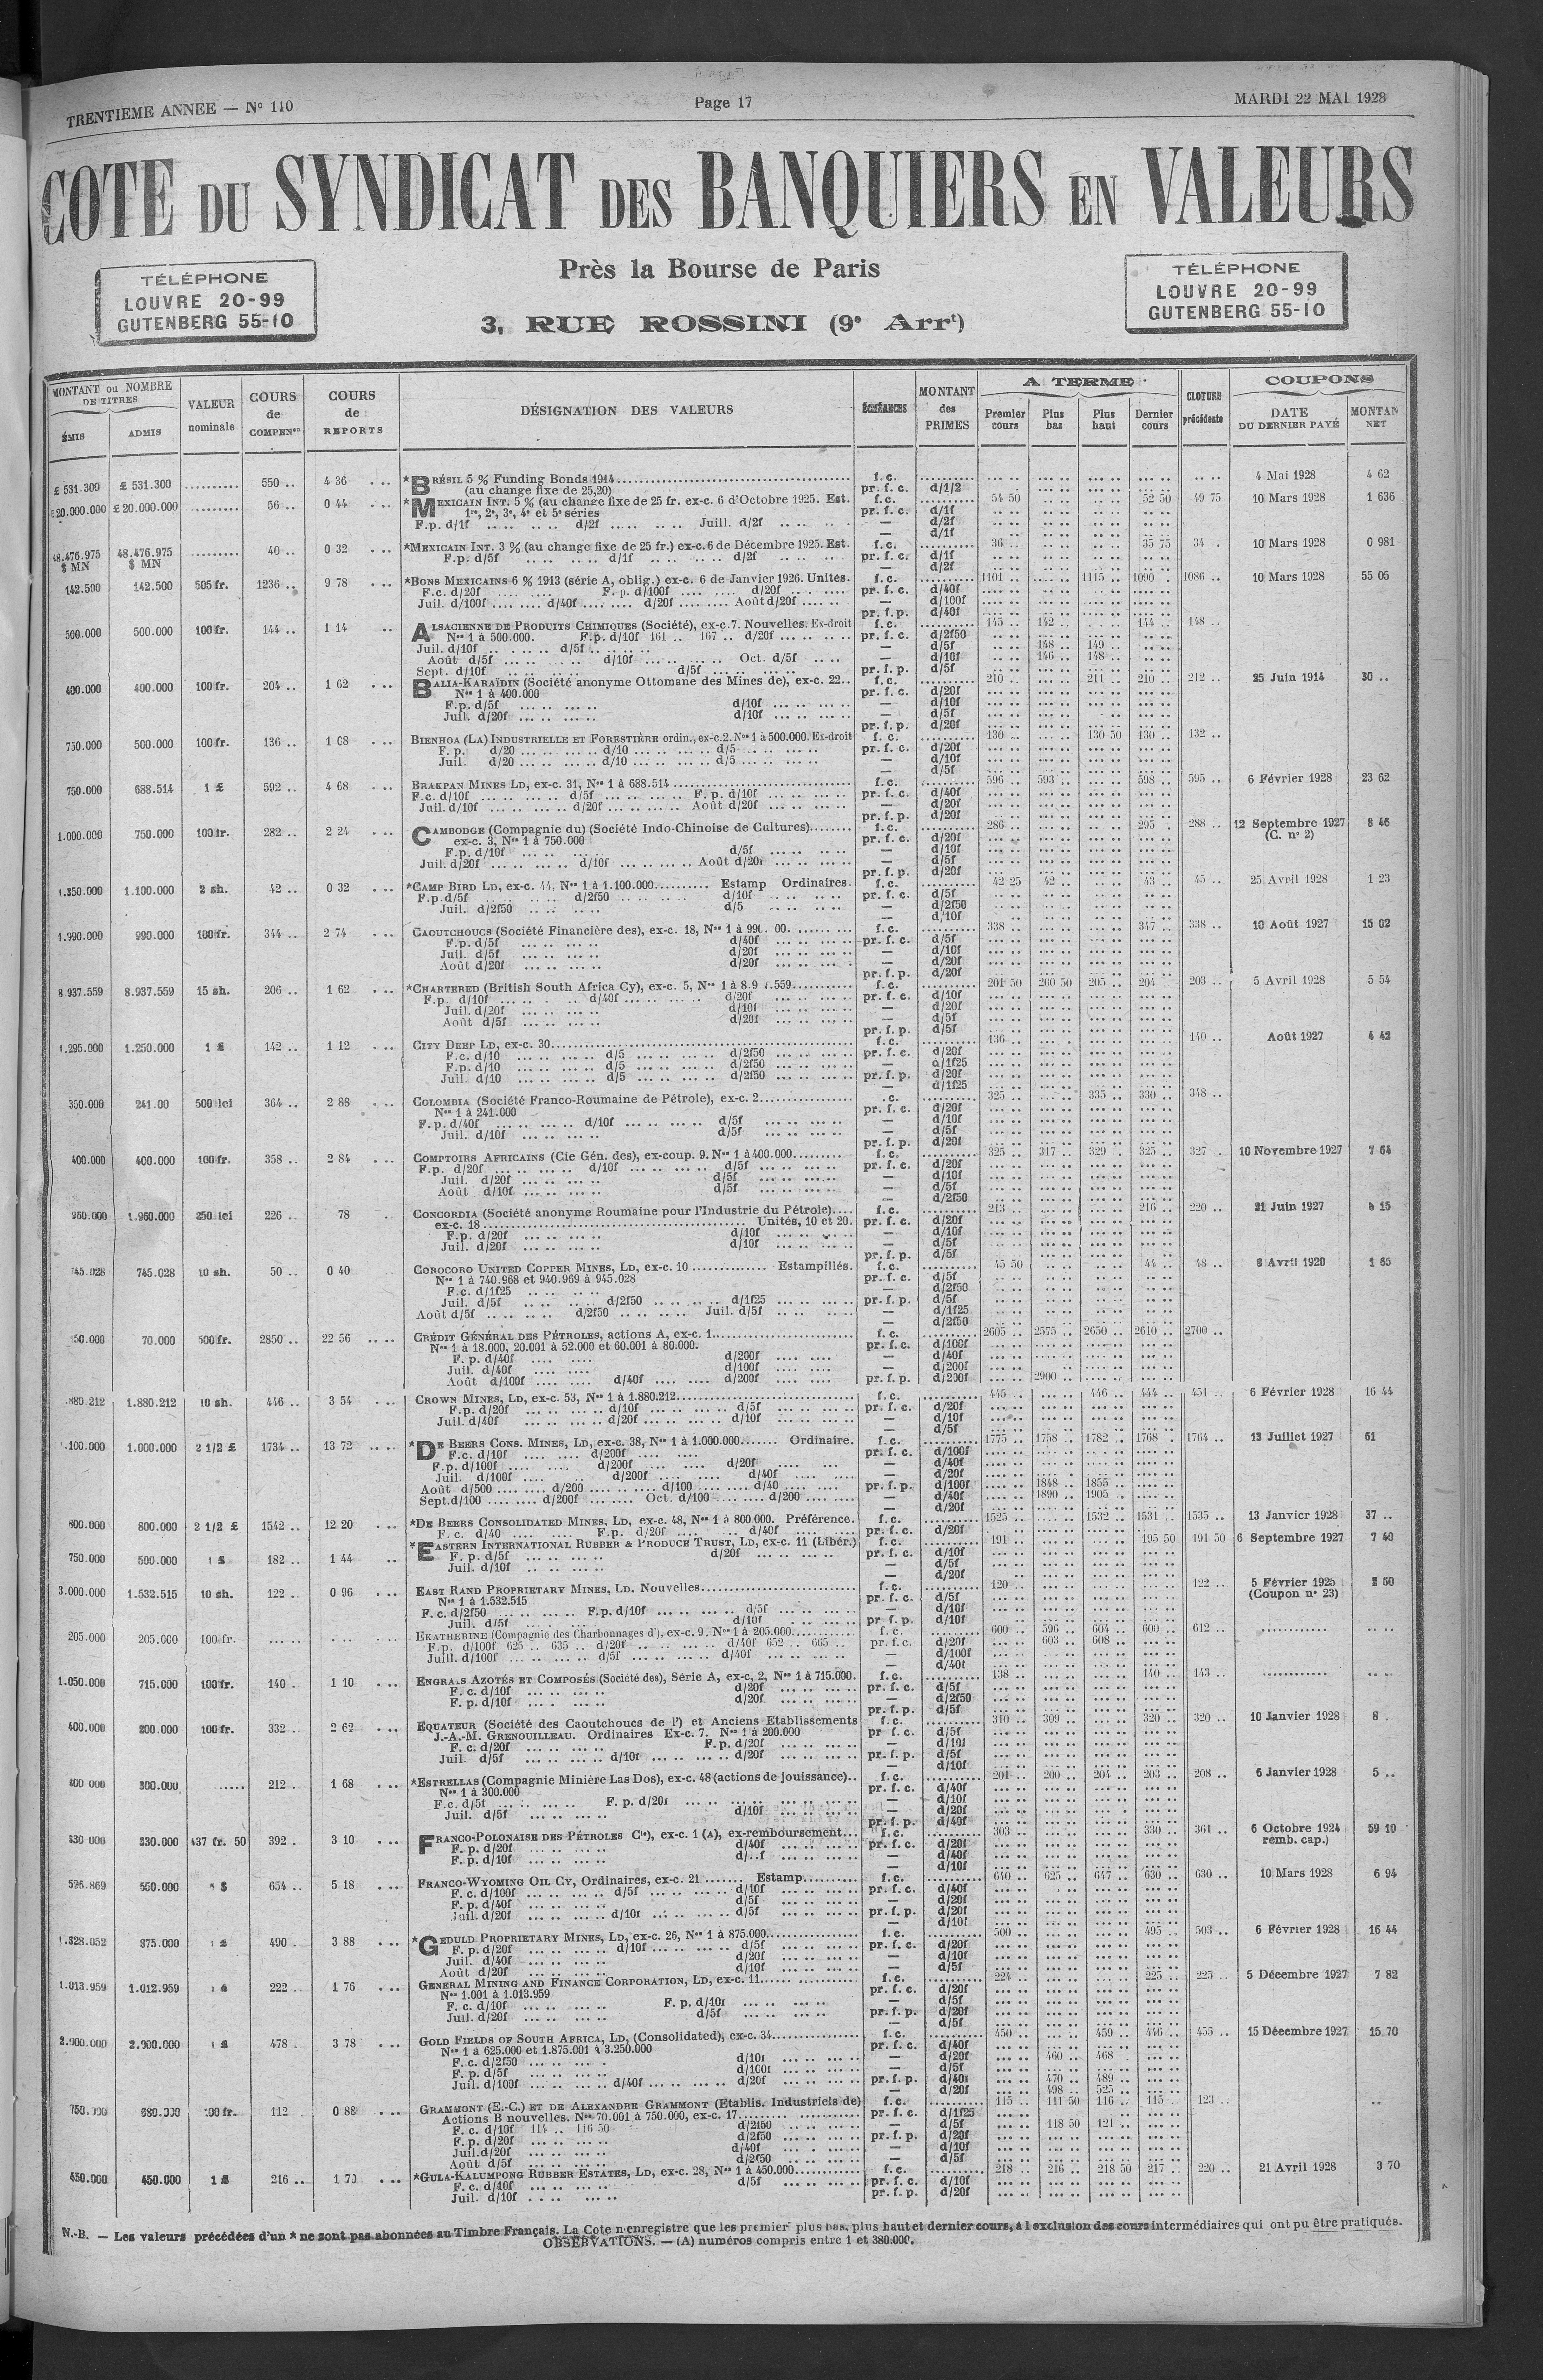 TRENTIEME ANNEE — Nº 110
Page 17
MARDI 22 MAI 1928
COTE DU SYNDICAT DES BANQUIERS EN VALEURS
TÉLÉPHONE
LOUVRE 20-99
GUTENBERG 55-10
Près la Bourse de Paris
3, RUE ROSSINI (9e Arrt)
TÉLÉPHONE
LOUVRE 20-99
GUTENBERG 55-10
MONTANT ou NOMBRE DE TITRES
ÉMIS ADMIS
VALEUR nominale
COURS de COMPENson
COURS de REPORTS
DÉSIGNATION DES VALEURS
ÉCHÉANCES
MONTANT des PRIMES
A TERME
Premier cours Plus bas Plus haut Dernier cours
CLOTURE précédente
COUPONS
DATE DU DERNIER PAYÉ
MONTAN NET
£ 531.300 £ 531.300 .......... 550 .. 4 36 *BRÉSIL 5 % Funding Bonds 1914 f. c. 4 Mai 1928 4 62
(au change fixe de 25,20) pr. f. c. d/1/2
£20.000.000 £ 20.000.000 ......... 56 .. 0 44 *MEXICAIN INT. 5 % (au change fixe de 25 fr. ex-c. 6 d'Octobre 1925. Est. f. c. 54 50 52 50 49 75 10 Mars 1928 1 636
1re, 2e, 3e, 4e et 5e séries pr. f. c. d/1f
F.p. d/1f d/2f Juill. d/2f — d/2f
— d/1f
48.476.975 48.476.975 ......... 40 .. 0 32 *MEXICAIN INT. 3 % (au change fixe de 25 fr.) ex-c. 6 de Décembre 1925. Est. f. c. 36 .. 35 75 34 . 10 Mars 1928 0 981
$ MN $ MN F.p. d/5f d/1f d/2f pr. f. c. d/1f
— d/2f
142.500 142.500 505 fr. 1236 .. 9 78 *BONS MEXICAINS 6 % 1913 (série A, oblig.) ex-c. 6 de Janvier 1926. Unités. f. c. 1101 .. 1115 .. 1090 . 1086 .. 10 Mars 1928 55 05
F.c. d/20f F. p. d/100f d/20f pr. f. c. d/40f
Juil. d/100f d/40f d/20f Août d/20f — d/100f
pr. f. p. d/40f
500.000 500.000 100 fr. 144 .. 1 14 ALSACIENNE DE PRODUITS CHIMIQUES (Société), ex-c. 7. Nouvelles. Ex-droit f. c. 145 .. 142 .. 144 .. 148 ..
Nos 1 à 500.000. F.p. d/10f 161 .. 167 .. d/20f pr. f. c. d/2f50
Juil. d/10f d/5f — d/5f 148 .. 149 ..
Août d/5f d/10f Oct. d/5f — d/10f 146 .. 148 ..
Sept. d/10f d/5f pr. f. p. d/5f
400.000 400.000 100 fr. 204 .. 1 62 BALIA-KARAÏDIN (Société anonyme Ottomane des Mines de), ex-c. 22.. f. c. 210 .. 211 .. 210 .. 212 .. 25 Juin 1914 30 ..
Nos 1 à 400.000 pr. f. c. d/20f
F.p. d/5f d/10f — d/10f
Juil. d/20f d/10f — d/5f
pr. f. p. d/20f
750.000 500.000 100 fr. 136 .. 1 08 BIENHOA (LA) INDUSTRIELLE ET FORESTIÈRE ordin., ex-c. 2. Nos 1 à 500.000. Ex-droit f. c. 130 .. 130 50 130 .. 132 ..
F. p. d/20 d/10 d/5 pr. f. c. d/20f
Juil. d/20 d/10 d/5 — d/10f
— d/5f
750.000 688.514 1 £ 592 .. 4 68 BRAKPAN MINES LD, ex-c. 31, Nos 1 à 688.514 f. c. 596 .. 593 .. 598 .. 595 .. 6 Février 1928 23 62
F.c. d/10f d/5f F. p. d/10f pr. f. c. d/40f
Juil. d/10f d/20f Août d/20f — d/20f
pr. f. p. d/20f
1.000.000 750.000 100 fr. 282 .. 2 24 CAMBODGE (Compagnie du) (Société Indo-Chinoise de Cultures) f. c. 286 .. 295 . 288 .. 12 Septembre 1927 8 46
ex-c. 3, Nos 1 à 750.000 pr. f. c. d/20f (C. nº 2)
F.p. d/10f d/5f — d/10f
Juil. d/20f d/10f Août d/20f — d/5f
pr. f. p. d/20f
1.350.000 1.100.000 2 sh. 42 .. 0 32 *CAMP BIRD LD, ex-c. 44, Nos 1 à 1.100.000 Estamp Ordinaires. f. c. 42 25 42 .. 43 .. 45 .. 25 Avril 1928 1 23
F.p. d/5f d/2f50 d/10f pr. f. c. d/5f
Juil. d/2f50 d/5 — d/2f50
— d/10f
1.990.000 990.000 100 fr. 344 .. 2 74 CAOUTCHOUCS (Société Financière des), ex-c. 18, Nos 1 à f. c. 338 .. 347 .. 338 .. 10 Août 1927 15 02
F.p. d/5f d/40f pr. f. c. d/5f
Juil. d/5f d/20f — d/10f
Août d/20f d/20f — d/20f
pr. f. p. d/20f
8.937.559 8.937.559 15 sh. 206 .. 1 62 *CHARTERED (British South Africa Cy), ex-c. 5, Nos 1 à f. c. 201 50 200 50 205 .. 204 203 .. 5 Avril 1928 5 54
F.p. d/10f d/40f d/20f pr. f. c. d/10f
Juil. d/20f d/10f — d/20f
Août d/5f d/20f — d/5f
pr. f. p. d/5f
1.295.000 1.250.000 1 £ 142 .. 1 12 CITY DEEP LD, ex-c. 30 f. c. 136 .. 140 .. Août 1927 4 42
F.c. d/10 d/5 d/2f50 pr. f. c. d/20f
F.p. d/10 d/5 d/2f50 — d/1f25
Juil. d/10 d/5 d/2f50 pr. f. p. d/20f
— d/1f25
350.000 241.00 500 lei 364 .. 2 88 COLOMBIA (Société Franco-Roumaine de Pétrole), ex-c. 2 .c. 325 .. 335 .. 330 .. 348 ..
Nos 1 à 241.000 pr. f. c. d/20f
F.p. d/40f d/10f d/5f — d/10f
Juil. d/10f d/5f — d/5f
pr. f. p. d/20f
400.000 400.000 100 fr. 358 .. 2 84 COMPTOIRS AFRICAINS (Cie Gén. des), ex-coup. 9. Nos 1 à 400.000 f. c. 325 .. 317 .. 329 .. 325 .. 327 . 10 Novembre 1927 7 64
F.p. d/20f d/10f d/5f pr. f. c. d/20f
Juil. d/20f d/5f — d/10f
Août d/10f d/5f — d/5f
— d/2f50
960.000 1.960.000 250 lei 226 .. 78 CONCORDIA (Société anonyme Roumaine pour l'Industrie du Pétrole) f. c. 213 .. 216 .. 220 .. 21 Juin 1927 15
ex-c. 18 Unités, 10 et 20. pr. f. c. d/20f
F.p. d/20f d/10f — d/10f
Juil. d/20f d/10f — d/5f
pr. f. p. d/5f
745.028 745.028 10 sh. 50 .. 0 40 COROCORO UNITED COPPER MINES, LD, ex-c. 10 Estampillés. f. c. 45 50 44 .. 48 .. 8 Avril 1920 1 65
Nos 1 à 740.968 et 940.969 à 945.028 pr. f. c. d/5f
F.c. d/1f25 — d/2f50
Juil. d/5f d/2f50 d/1f25 pr. f. p. d/5f
Août d/5f d/2f50 Juil. d/5f — d/1f25
— d/2f50
50.000 70.000 500 fr. 2850 .. 22 56 CRÉDIT GÉNÉRAL DES PÉTROLES, actions A, ex-c. 1 f. c. 2605 .. 2575 .. 2650 .. 2610 .. 2700 ..
Nos 1 à 18.000, 20.001 à 52.000 et 60.001 à 80.000. pr. f. c. d/100f
F. p. d/40f d/200f — d/40f
Juil. d/40f d/100f — d/200f
Août d/100f d/40f d/200f pr. f. p. d/200f 2900 ..
880.212 1.880.212 10 sh. 446 .. 3 54 CROWN MINES, LD, ex-c. 53, Nos 1 à 1.880.212 f. c. 445 .. 446 .. 444 .. 451 .. 6 Février 1928 16 44
F.p. d/20f d/10f d/5f pr. f. c. d/20f
Juil. d/40f d/20f d/10f — d/10f
— d/5f
.100.000 1.000.000 2 1/2 £ 1734 .. 13 72 *DE BEERS CONS. MINES, LD, ex-c. 38, Nos 1 à 1.000.000 Ordinaire. f. c. 1775 .. 1758 .. 1782 .. 1768 . 1764 .. 13 Juillet 1927 61
F.c. d/10f d/200f pr. f. c. d/100f
F.p. d/100f d/200f d/20f — d/40f
Juil. d/100f d/200f d/40f — d/20f
Août d/500 d/200 d/100 d/40 pr. f. p. d/100f 1848 .. 1855 ..
Sept. d/100 d/200f Oct. d/100 d/200 — d/40f 1890 .. 1905 ..
— d/20f
800.000 800.000 2 1/2 £ 1542 .. 12 20 *DE BEERS CONSOLIDATED MINES, LD, ex-c. 48, Nos 1 à 800.000. Préférence. f. c. 1525 .. 1532 .. 1531 .. 1535 .. 13 Janvier 1928 37 ..
F. c. d/40 F.p. d/20f d/40f pr. f. c. d/20f
750.000 500.000 1 £ 182 .. 1 44 *EASTERN INTERNATIONAL RUBBER & PRODUCE TRUST, LD, ex-c. 11 (Libér.) f. c. 191 .. 195 50 191 50 6 Septembre 1927 7 40
F. p. d/5f d/20f pr. f. c. d/10f
Juil. d/10f — d/5f
— d/20f
3.000.000 1.532.515 10 sh. 122 .. 0 96 EAST RAND PROPRIETARY MINES, LD. Nouvelles f. c. 120 .. 122 .. 5 Février 1925 60
Nos 1 à 1.532.515 pr. f. c. d/5f (Coupon nº 23)
F. c. d/2f50 F.p. d/10f d/5f — d/10f
Juil. d/5f d/10f pr f. p. d/10f
205.000 205.000 100 fr. EKATHERINE (Compagnie des Charbonnages d'), ex-c. 9. Nos 1 à 205.000 f. c. 600 .. 596 .. 604 .. 600 .. 612 ..
F.p. d/100f 625 .. 635 .. d/20f d/40f 652 .. 665 .. pr. f. c. d/20f 603 .. 608 ..
Juill. d/100f d/5f d/40f — d/100f
— d/40f
1.050.000 715.000 100 fr. 140 . 1 10 ENGRAIS AZOTÉS ET COMPOSÉS (Société des), Série A, ex-c. 2, Nos 1 à 715.000. f. c. 138 .. 140 .. 143 ..
F. c. d/10f d/20f pr. f. c. d/5f
F. p. d/10f d/20f — d/2f50
pr. f. p. d/5f
400.000 200.000 100 fr. 332 . 2 62 EQUATEUR (Société des Caoutchoucs de l') et Anciens Etablissements f. c. 310 .. 309 .. 320 .. 320 .. 10 Janvier 1928 8 .
J.-A.-M. GRENOUILLEAU. Ordinaires Ex-c. 7. Nos 1 à 200.000 pr f. c. d/5f
F. c. d/20f F.p. d/20f — d/10f
Juil. d/5f d/10f d/20f pr. f. p. d/5f
— d/10f
400 000 300.000 ...... 212 . 1 68 *ESTRELLAS (Compagnie Minière Las Dos), ex-c. 48 (actions de jouissance).. f. c. 201 .. 200 .. 204 .. 203 .. 208 .. 6 Janvier 1928 5 ..
Nos 1 à 300.000 pr. f. c. d/40f
F.c. d/5f F. p. d/20f — d/10f
Juil. d/5f d/10f — d/20f
pr. f. p. d/40f
330 000 330.000 437 fr. 50 392 . 3 10 FRANCO-POLONAISE DES PÉTROLES Cie), ex-c. 1 (A), ex-remboursement... f. c. 303 .. 330 .. 361 .. 6 Octobre 1924 59 10
F. p. d/20f d/40f pr. f. c. d/20f remb. cap.)
F. p. d/10f — d/40f
— d/10f
526.869 550.000 $ 654 .. 5 18 FRANCO-WYOMING OIL CY, Ordinaires, ex-c. 21 Estamp f. c. 640 .. 625 .. 647 .. 630 .. 630 .. 10 Mars 1928 6 94
F. c. d/100f d/5f d/10f pr. f. c. d/40f
F. p. d/40f d/5f — d/20f
Juil. d/20f d/10f d/5f pr. f. p. d/20f
— d/10f
1.328.052 875.000 1 £ 490 . 3 88 *GEDULD PROPRIETARY MINES, LD, ex-c. 26, Nos 1 à 875.000 f. c. 500 .. 495 .. 503 .. 6 Février 1928 16 44
F. p. d/20f d/10f d/5f pr. f. c. d/20f
Juil. d/40f d/20f — d/10f
Août d/20f d/10f — d/5f
1.013.959 1.012.959 1 £ 222 .. 1 76 GENERAL MINING AND FINANCE CORPORATION, LD, ex-c. 11 f. c. 224 .. 225 .. 225 .. 5 Décembre 1927 7 82
Nos 1.001 à 1.013.959 pr. f. c. d/20f
F. c. d/10f F. p. d/10f — d/5f
Juil. d/20f d/5f pr. f. p. d/20f
— d/5f
2.900.000 2.900.000 1 £ 478 . 3 78 GOLD FIELDS OF SOUTH AFRICA, LD, (Consolidated), ex-c. 34 f. c. 450 .. 459 .. 446 .. 455 .. 15 Décembre 1927 15 70
Nos 1 à 625.000 et 1.875.001 à 3.250.000 pr. f. c. d/40f
F. c. d/2f50 d/10f — d/20f 460 .. 468 .
F. p. d/5f d/100f — d/5f
Juil. d/100f d/40f d/20f pr. f. p. d/40f 470 .. 489 ..
— d/20f 498 .. 525 ..
750.000 680.000 100 fr. 112 0 88 GRAMMONT (E.-C.) ET DE ALEXANDRE GRAMMONT (Etablis. Industriels de) f. c. 115 .. 111 50 116 .. 115 .. 123 ..
Actions B nouvelles. Nos 70.001 à 750.000, ex-c. 17 pr. f. c. d/1f25
F. c. d/10f 114 .. 116 50 d/2f50 — d/5f 118 50 121 ..
F. p. d/20f d/2f50 pr. f. p. d/20f
Juil. d/20f d/40f — d/10f
Août d/5f d/2f50 — d/5f
450.000 450.000 1 £ 216 .. 1 70 *GULA-KALUMPONG RUBBER ESTATES, LD, ex-c. 28, Nos 1 à 450.000 f. c. 218 .. 216 .. 218 50 217 .. 220 .. 21 Avril 1928 3 70
F. c. d/10f d/5f pr. f. c. d/10f
Juil. d/10f pr. f. p. d/20f
N.-B. — Les valeurs précédées d'un * ne sont pas abonnées au Timbre Français. La Cote n'enregistre que les premier plus bas, plus haut et dernier cours, à l exclusion des cours intermédiaires qui ont pu être pratiqués.
OBSERVATIONS. — (A) numéros compris entre 1 et 380.000.